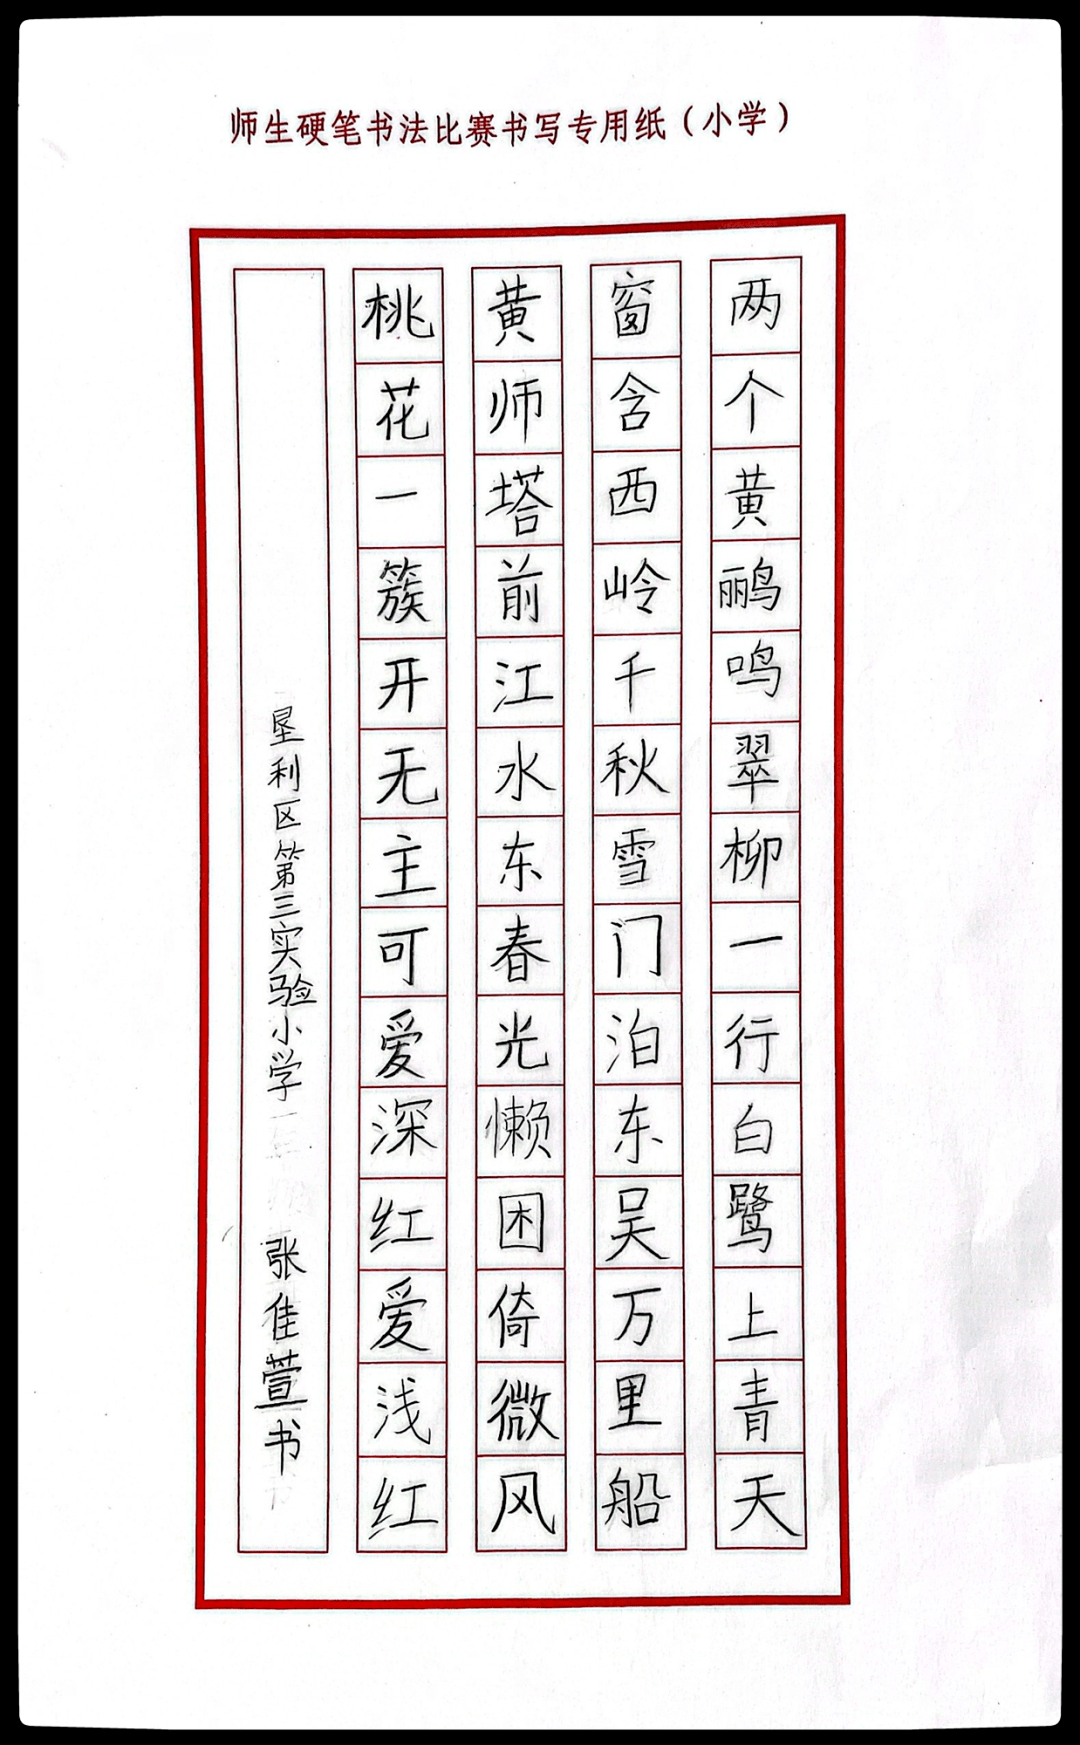 师生硬笔书法比赛书写专用纸（小学）
两个黄鹂鸣翠柳一行白鹭上青天
窗含西岭千秋雪门泊东吴万里船
黄师塔前江水东春光懒困倚微风
桃花一簇开无主可爱深红爱浅红
垦利区第三实验小学 张佳萱书